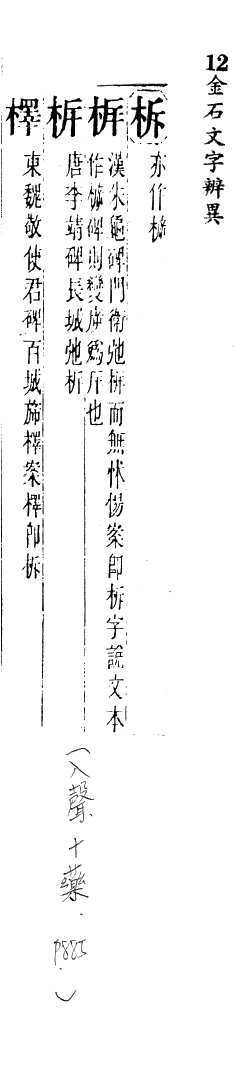 12金石文字辨異
柝 亦作㯓
漢朱龜碑門衛弛㭊而無怵惕案即柝字說文本
作㯓碑則變㡿為斥也
唐李靖碑長城弛
檡 東魏敬使君碑百城施檡案檡即柝
(入聲十藥. P885.)